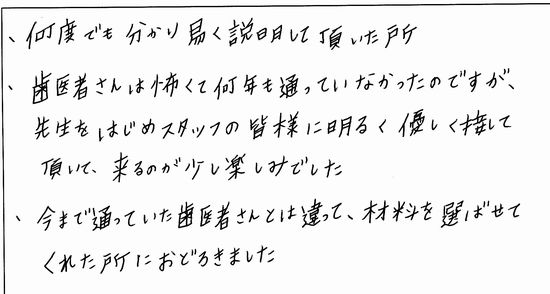 、何度でも分かり易く説明して頂いた所
、歯医者さんは怖くて何年も通っていなかったのですが、
先生をはじめスタッフの皆様に明るく優しく接して
頂いて、来るのが少し楽しみでした
、今まで通っていた歯医者さんとは違って、材料を選ばせて
くれた所におどろきました